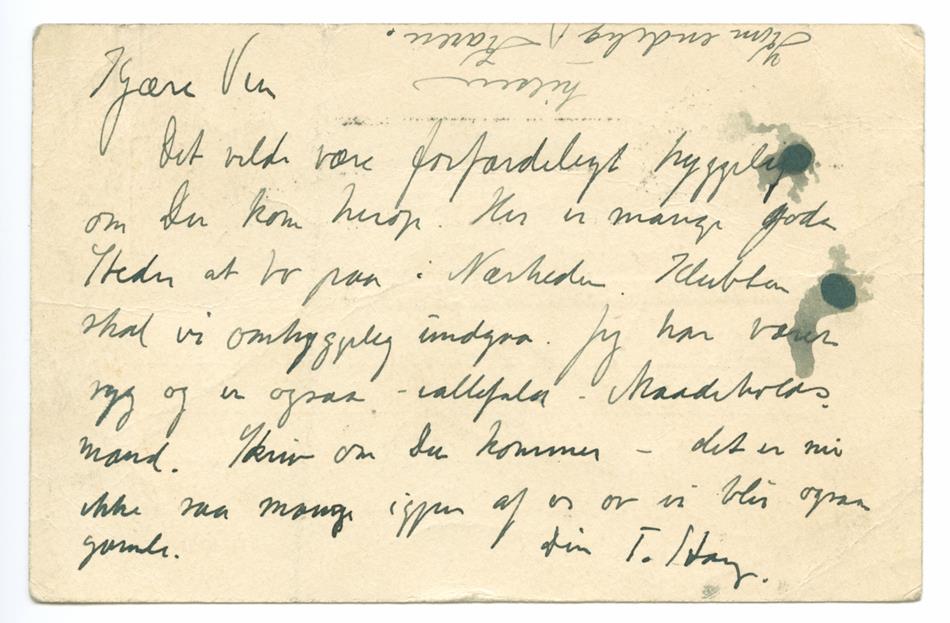 Kjære Ven
Det vilde være forfærdeligt hyggelig
om Du kom herop. Her er mange gode
Steder at bo paa i Nærheden. Klubben
skal vi omhyggelig undgaa. Jeg har været
syg og er ogsaa - iallefald - Maadeholds-
mand. Skriv om Du kommer - det er nu
ikke saa mange igjen af os og vi blir ogsaa
gamle.
Din T.
Kom endelig
hilsen Karen.